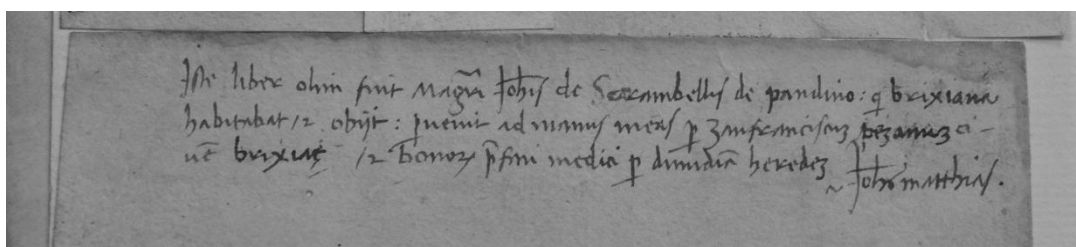 Iste liber olim fuit Magr̄i Joh̄is de Scarambellis de pandino: q̄ brixiana
habitabat / ⁊ obijt: ꝑuenit ad manus meas ꝑ Zanfranciscuꝫ pezanuꝫ ci-
uē brixiae / ⁊ bonorꝝ p̄fati medici ꝑ dimidiā heredeꝫ
Joh̄is matthias.